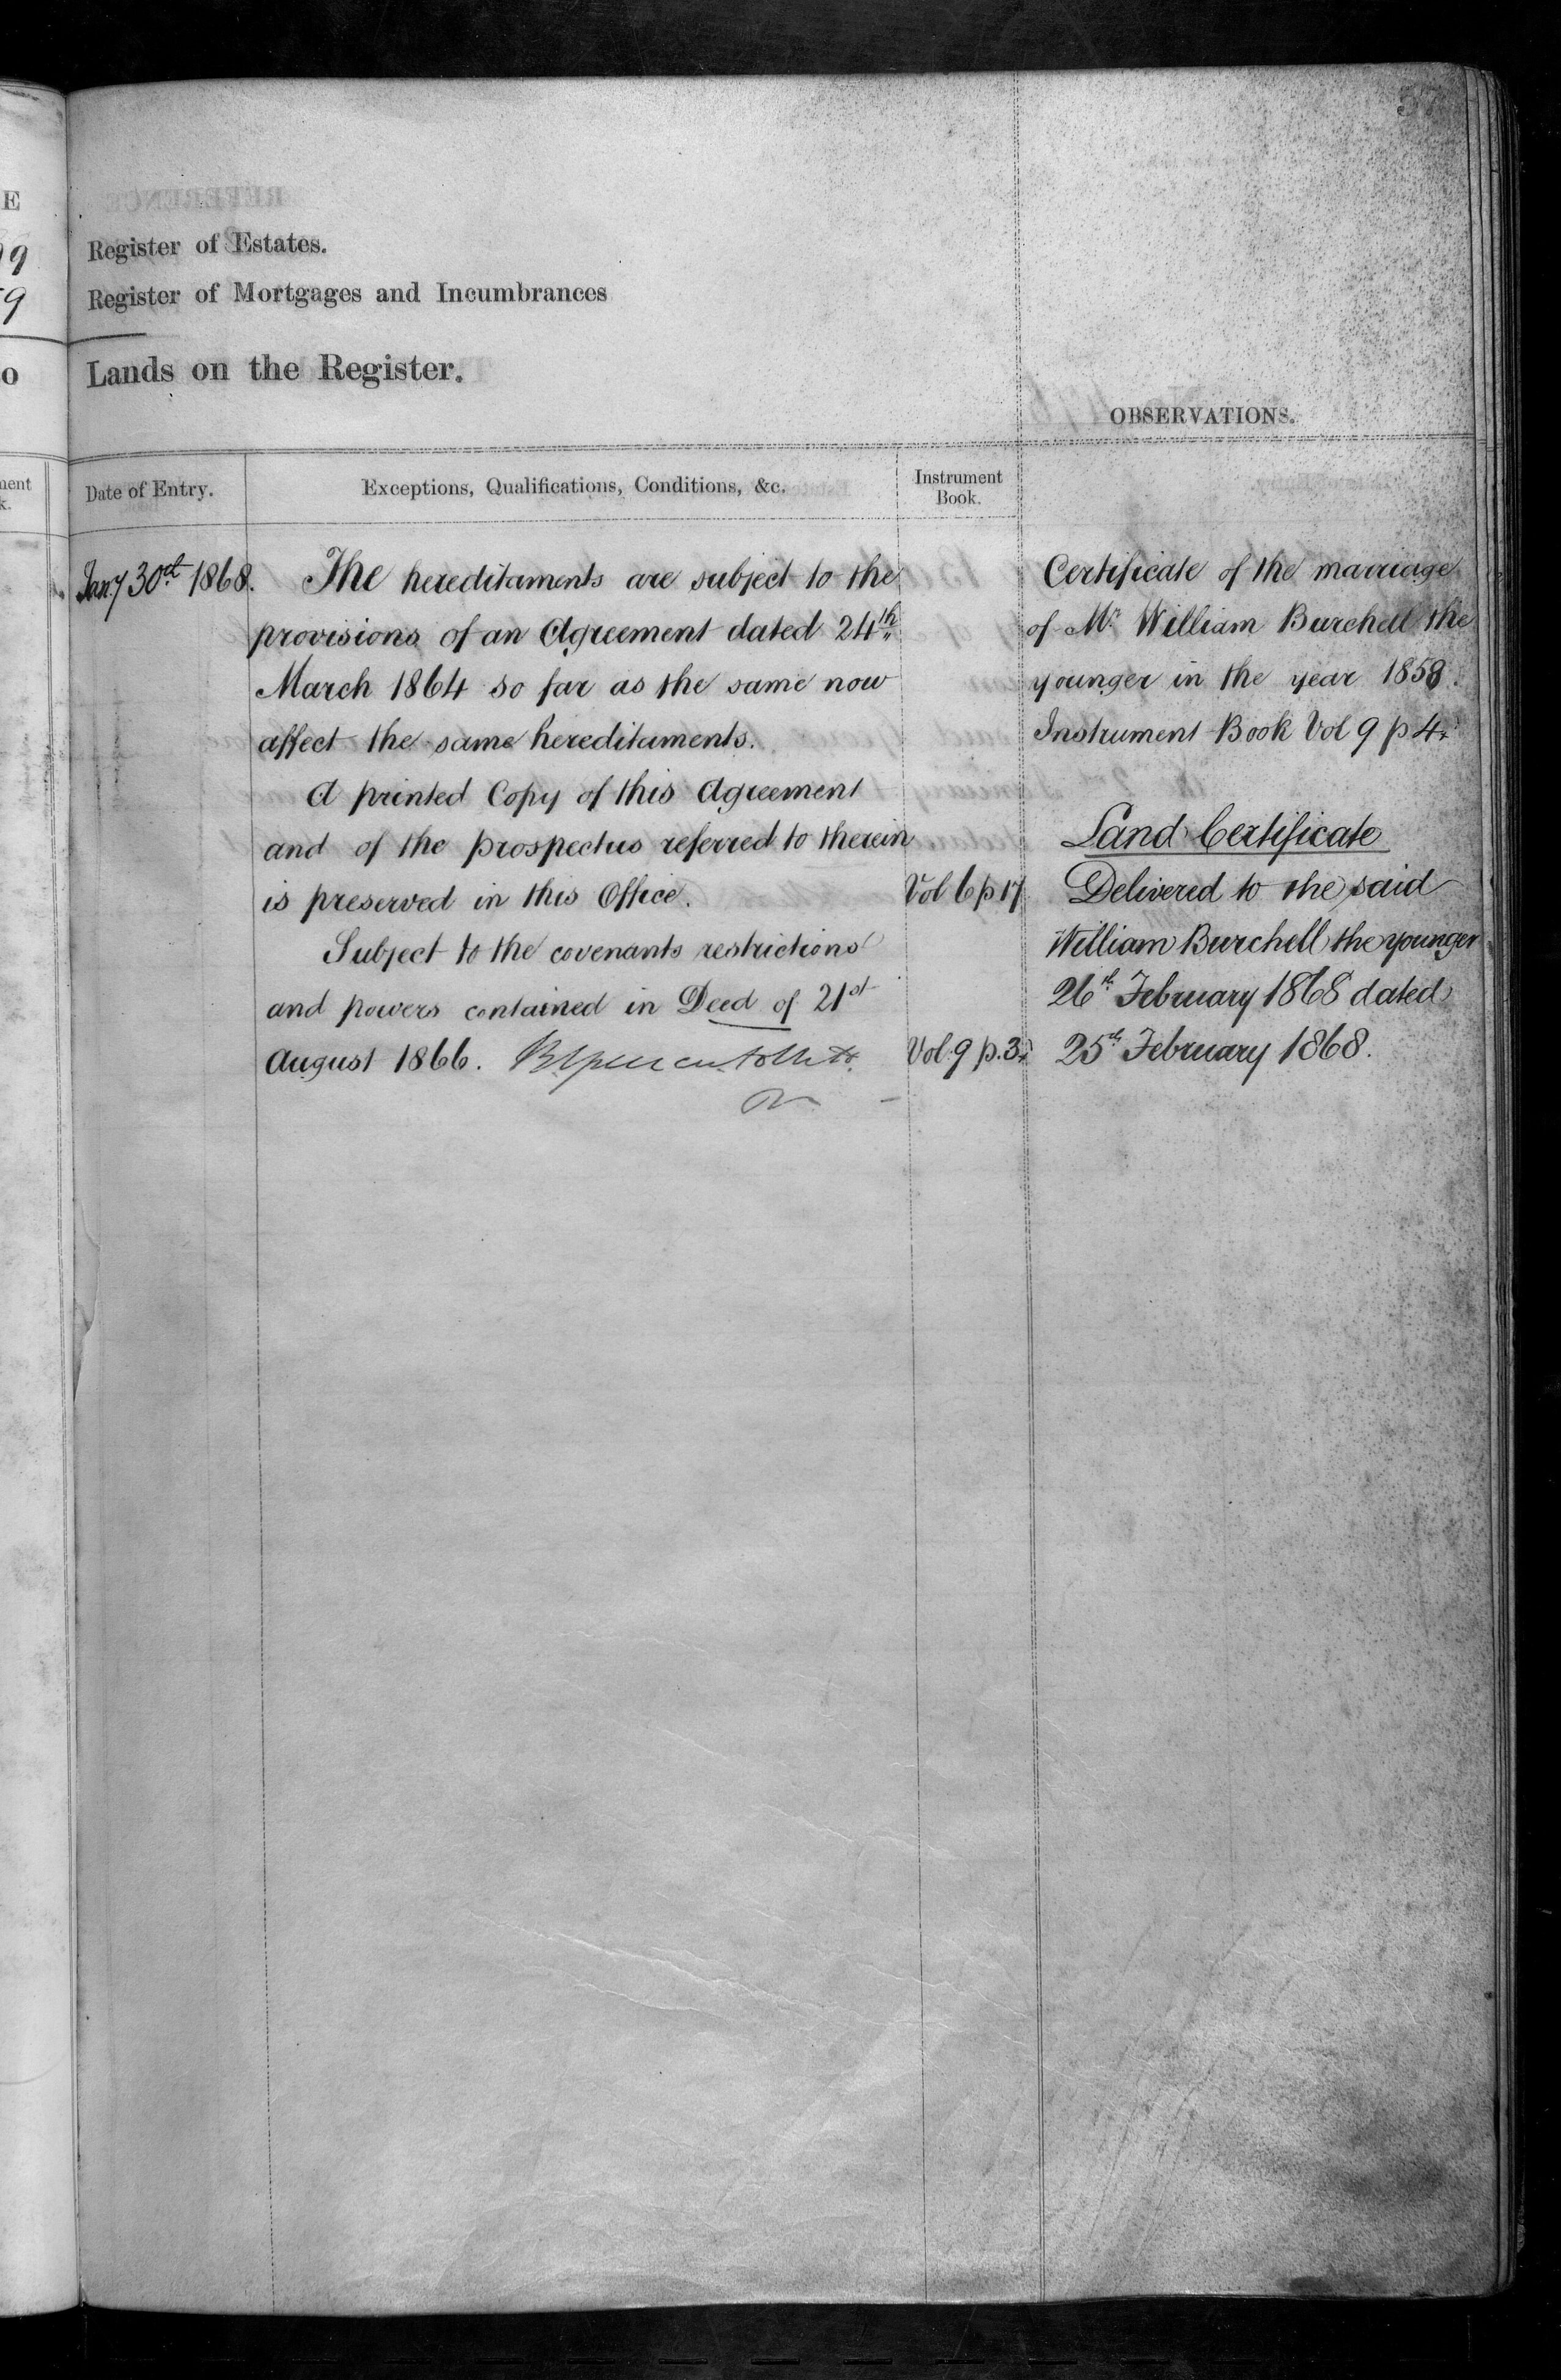 57
Register of Estates.
Register of Mortgages and Incumbrances
Lands on the Register.
OBSERVATIONS.
Date of Entry.
Exceptions, Qualifications, Conditions, &c.
Instrument
Book.
Jany 30th 1868.
The hereditaments are subject to the
provisions of an Agreement dated 24th
March 1864 so far as the same now
affect the same hereditaments.
A printed Copy of this Agreement
and of the prospectus referred to therein
is preserved in this Office.
Vol 6 p 17
Subject to the covenants restrictions
and powers contained in Deed of 21st
August 1866.
Vol. 9 p. 3.
Certificate of the marriage
of Mr. William Burchell the
younger in the year 1858.
Instrument Book Vol 9 p 4.
Land Certificate
Delivered to the said
William Burchell the younger
26th February 1868 dated
25th February 1868.